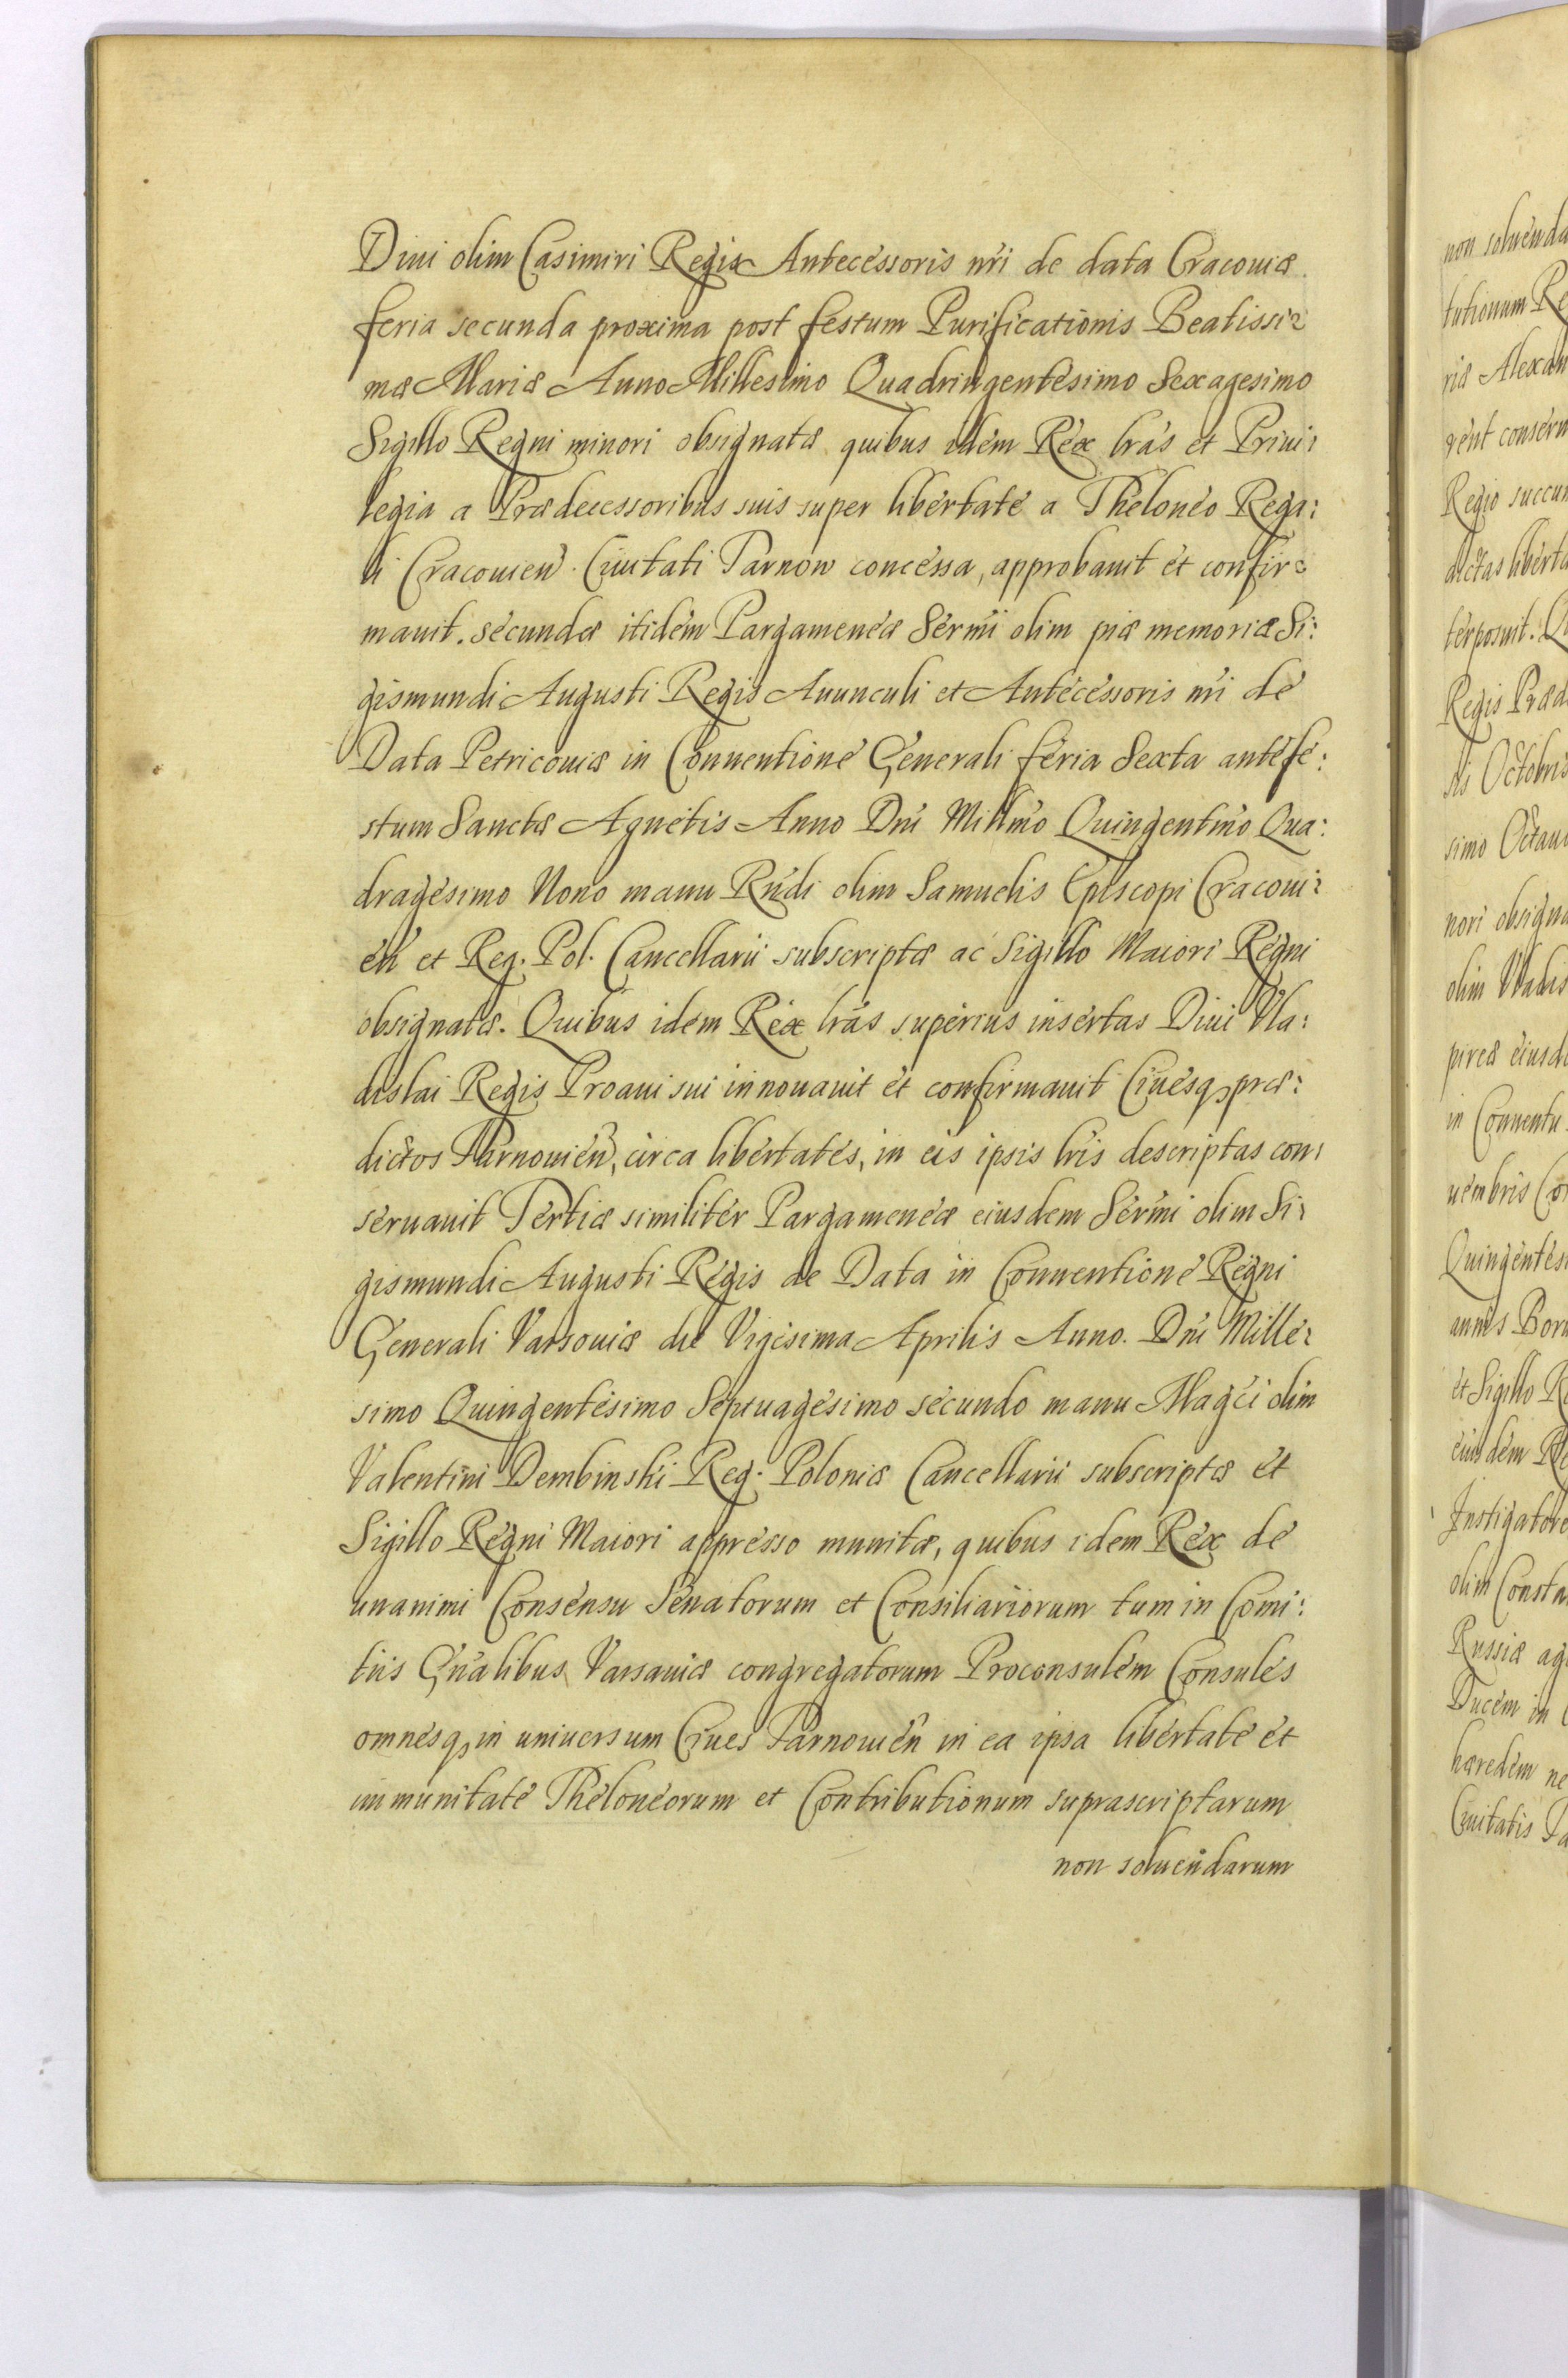 Diui olim Casimiri Regis Antecessoris nri de data Cracouiæ
feria secunda proxima post festum Purificationis Beatissi:
mæ Mariæ Anno Millesimo Quadringentesimo Sexagesimo
Sigillo Regni minori obsignatæ quibus idem Rex lras et Priui:
legia a Prædecessoribus suis super libertate a Theloneo Rega:
li Cracouien. Ciuitati Tarnow concessa, approbauit et confir:
mauit. secundæ itidem Pargameneæ Sermi olim piæ memoriæ Si:
gismundi Augusti Regis Auunculi et Antecessoris nri de
Data Petricouiæ in Conuentione Generali feria Sexta ante fe:
stum Sanctæ Agnetis Anno Dni Millmo Quingentmo Qua:
dragesimo Nono manu Rndi olim Samuelis Episcopi Cracoui:
en et Reg. Pol. Cancellarii subscriptæ ac Sigillo Maiori Regni
obsignatæ. Quibus idem Rex lras superius insertas Diui Vla:
dislai Regis Proaui sui innouauit et confirmauit Ciuesq₃ præ:
dictos Tarnouien, circa libertates, in eis ipsis lris descriptas con:
seruauit Tertiæ similiter Pargameneæ eiusdem Sermi olim Si:
gismundi Augusti Regis de Data in Conuentione Regni
Generali Varsouiæ die Vigesima Aprilis Anno. Dni Mille:
simo Quingentesimo Septuagesimo secundo manu Magci olim
Valentini Dembinski Reg. Poloniæ Cancellarii subscriptæ et
Sigillo Regni Maiori appresso munitæ, quibus idem Rex de
unanimi Consensu Senatorum et Consiliariorum tum in Comi:
tiis Gnalibus Varsauiæ congregatorum Proconsulem Consules
omnesq₃ in uniuersum Ciues Tarnouien in ea ipsa libertate et
immunitate Theloneorum et Contributionum suprascriptarum
non soluendarum
non soluenda
tutionum Re
riæ Alexan
rent conseru
Regio succum
dictas liberta
terposuit.
Regis Præd
sis Octobris
simo Octauo
nori obsigna
olim Vladis
pireæ eiusde
in Conuentu
uembris Co
Quingentes
annis Boru
et Sigillo Re
eiusdem Re
Instigatore
olim Consta
Russiæ ag
Ducem in
hæredem ne
Ciuitatis Ta